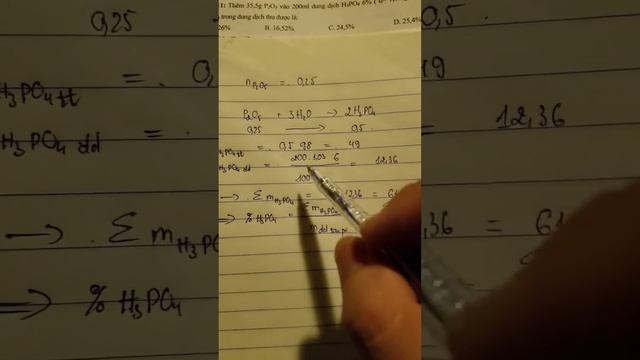 1: Thêm 35,5g P₂O₅ vào 200ml dung dịch H₃PO₄ 6% (
trong dung dịch thu được là:
26% B. 16,52% C. 24,5% D. 25,4%
n P₂O₅ = 0,25
P₂O₅ + 3H₂O → 2H₃PO₄
0,25 → 0,5
H₃PO₄ tt = 0,5 . 98 = 49
H₃PO₄ dd = 200 . 1,03 . 6 / 100 = 12,36
→ Σ m H₃PO₄ = 12,36 = 61
⇒ % H₃PO₄ = Σ m H₃PO₄
m dd sau pứ
0,25
H₃PO₄ tt = 0,
H₃PO₄ dd =
→ Σ m H₃PO₄
⇒ % H₃PO₄
49
= 12,36
,36 = 61